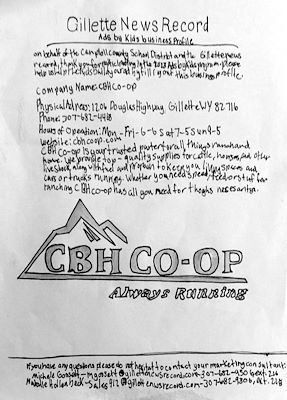 Gillette News Record
Ads by Kids business Profile
on behalf of the Campbell County School District and the Gillette news
record, thank you for participating in the Ads by Kids program. please
help us help the kids by filling out this business profile
Company Name: CBH Co-op
Physical Address: 1206 Douglas Highway, Gillette WY 82716
Phone: 307-682-4468
Hours of Operation: Mon-Fri-6-6 Sat 7-5 Sun 9-5
website: cbhcoop.com
CBH Co-op Is your trusted partner for all things ranch and
home. We provide top-quality supplies for cattle, horses, and other
livestock, along with fuel and propane to keep your
cars or trucks running. Whether you need feed or stuf for
ranching CBH co-op has all you need for
CBH CO-OP
Always Running
if you have any questions please do not to contact your marketing consultant:
Michele Gossett-mgossett@gillettenewsrecord.com-307-682-9306 ext. 216
Hollenbeck-Sales912@gillettenewsrecord.com-307-682-9306, ext. 218